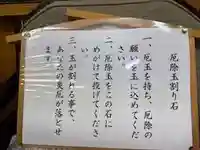 厄除玉割り石
一、厄玉を持ち、厄除の
願いを玉に込めてくだ
さい。
二、厄除玉をこの石に
めがけて投げてくださ
い。
三、玉が割れる事で、
あなたの災厄が落とせ
ます。